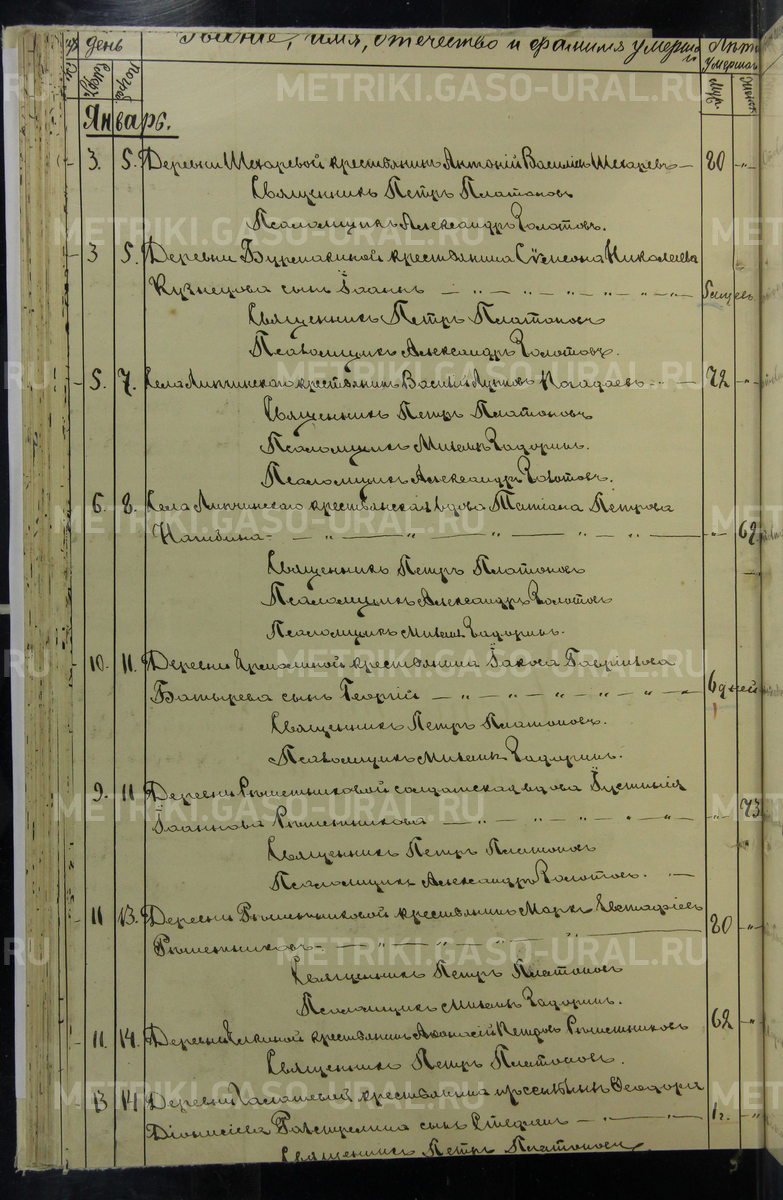 день
Звание, имя, отчество и фамилия умерш
Лѣта
умершаго
Муж.
Женск.
Январь.
3. 5. Деревни Шехаревой крестьянинъ Антоній Василіевъ Шехаревъ — 80 -„-
Священникъ Петръ Платоновъ
Псаломщикъ Александръ Золотовъ.
3 5. Деревни Бурмакиной крестьянина Сѵмеона Николаева
Кузнецова сынъ Іоаннъ
Священникъ Петръ Платоновъ
Псаломщикъ Александръ Золотовъ.
5. 7. Села Липчинскаго крестьянинъ Василій Погадаевъ — 72 -„-
Священникъ Петръ Платоновъ
Псаломщикъ Михаилъ Задоринъ.
Псаломщикъ Александръ Золотовъ.
6. 8. Села Липчинскаго крестьянская вдова Татіана Петрова
Нагибина 62
Священникъ Петръ Платоновъ
Псаломщикъ Александръ Золотовъ
Псаломщикъ Михаилъ Задоринъ.
10. 11. Деревни Ермолиной крестьянина Іакова Гавріилова
Батырева сынъ Георгій 6 дней
Священникъ Петръ Платоновъ.
Псаломщикъ Михаилъ Задоринъ.
9. 11 Деревни Рѣшетниковой солдатская вдова Іустинія
Іоаннова Рѣшетникова 73
Священникъ Петръ Платоновъ
Псаломщикъ Александръ Золотовъ.
11 13. Деревни Рѣшетниковой крестьянинъ Маркъ Евстафіевъ
Рѣшетниковъ 80 -„-
Священникъ Петръ Платоновъ
Псаломщикъ Михаилъ Задоринъ.
11. 14. Деревни Елкиной крестьянинъ Аѳанасій Петровъ Рѣшетниковъ 62 -„-
Священникъ Петръ Платоновъ.
13 14 Деревни крестьянина Ѳеодора
Діонисіева сынъ Стефанъ 1 г. -„-
Священникъ Петръ Платоновъ
METRIKI.GASO-URAL.RU